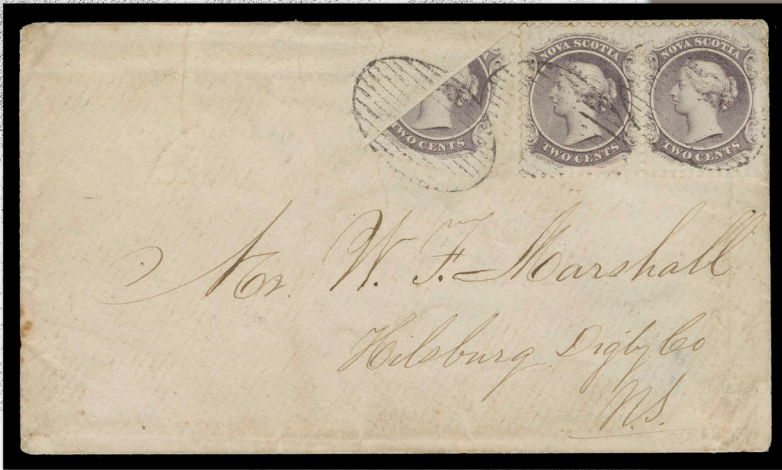 TWO CENTS
NOVA SCOTIA
TWO CENTS
NOVA SCOTIA
TWO CENTS
Mr. W. F. Marshall
Hilsburg Digby Co
N.S.